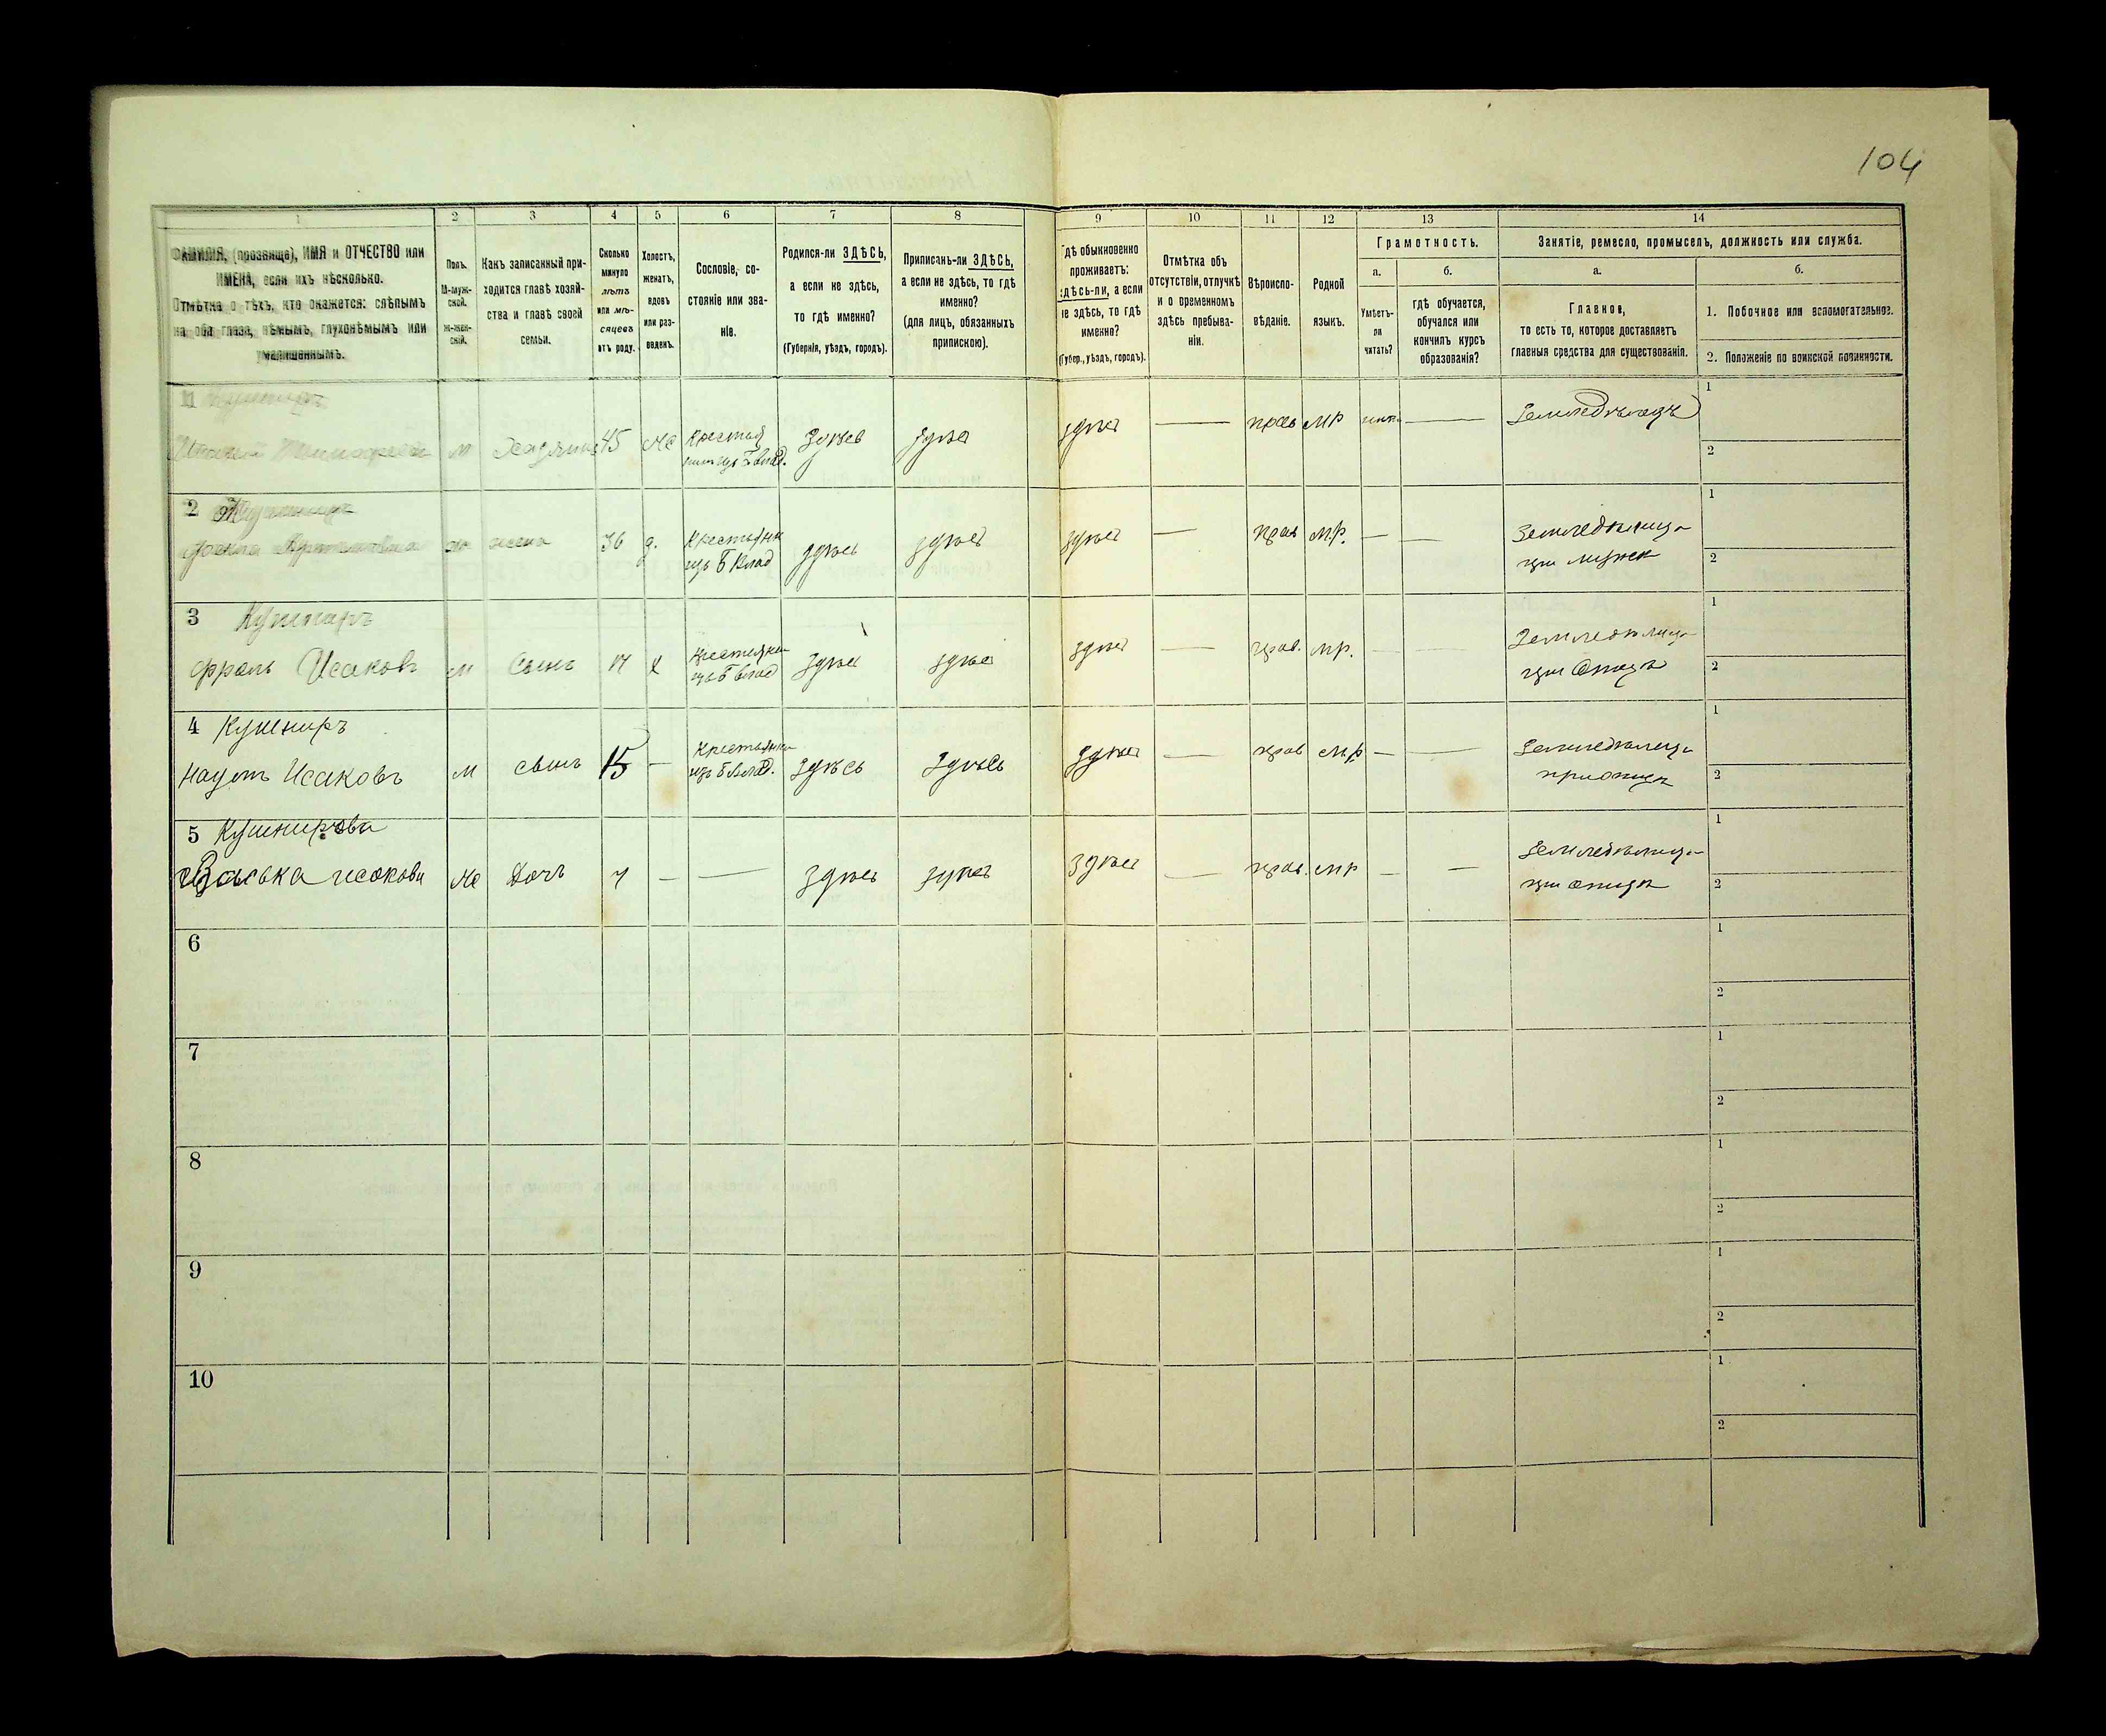 104
1 2 3 4 5 6 7 8 9 10 11 12 13 14
ФАМИЛІЯ, (прозвище), ИМЯ и ОТЧЕСТВО или
ИМЕНА, если ихъ нѣсколько.
Отмѣтка о тѣхъ, кто окажется: слѣпымъ
на оба глаза, нѣмымъ, глухонѣмымъ или
умалишеннымъ.
Полъ.
М-муж-
ской.
Ж-жен-
скій.
Какъ записанный при-
ходится главѣ хозяй-
ства и главѣ своей
семьи.
Сколько
минуло
лѣтъ
или мѣ-
сяцевъ
отъ роду.
Холостъ,
женатъ,
вдовъ
или раз-
веденъ.
Сословіе, со-
стояніе или зва-
ніе.
Родился-ли ЗДѢСЬ,
а если не здѣсь,
то гдѣ именно?
(Губернія, уѣздъ, городъ).
Приписанъ-ли ЗДѢСЬ,
а если не здѣсь, то гдѣ
именно?
(для лицъ, обязанныхъ
припискою).
гдѣ обыкновенно
проживаетъ:
здѣсь-ли, а если
не здѣсь, то гдѣ
именно?
(Губер., уѣздъ, городъ).
Отмѣтка объ
отсутствіи, отлучкѣ
и о временномъ
здѣсь пребыва-
ніи.
Вѣроиспо-
вѣданіе.
Родной
языкъ.
Грамотность.
а.
Умѣетъ-
ли
читать?
б.
гдѣ обучается,
обучался или
кончилъ курсъ
образованія?
Занятіе, ремесло, промыселъ, должность или служба.
а.
Главное,
то есть то, которое доставляетъ
главныя средства для существованія.
б.
1. Побочное или вспомогательное.
2. Положеніе по воинской повинности.
1
м 45 здѣсь здѣсь здѣсь — прав мр — Земледѣлецъ
1
2
2
ж жена 36 з. здѣсь здѣсь здѣсь — прав мр. — —
из Б влад
Земледѣлица
при мужѣ
1
2
3 Кушниръ
Исаковъ м Сынъ 17 х здѣсь здѣсь здѣсь — прав. мр. — —
изъ Б влад
Земледѣлица
при отцѣ
1
2
4 Кушниръ
Наумъ Исаковъ м сынъ 15 — здѣсь здѣсь здѣсь — прав мр — —
изъ Б влад.
Земледѣлица
при отцѣ
1
2
5 Кушнирова
Исакова Ж Дочь — — здѣсь здѣсь здѣсь — прав. мр — —
Земледѣлица
при отцѣ
1
2
6
1
2
7
1
2
8
1
2
9
1
2
10
1
2